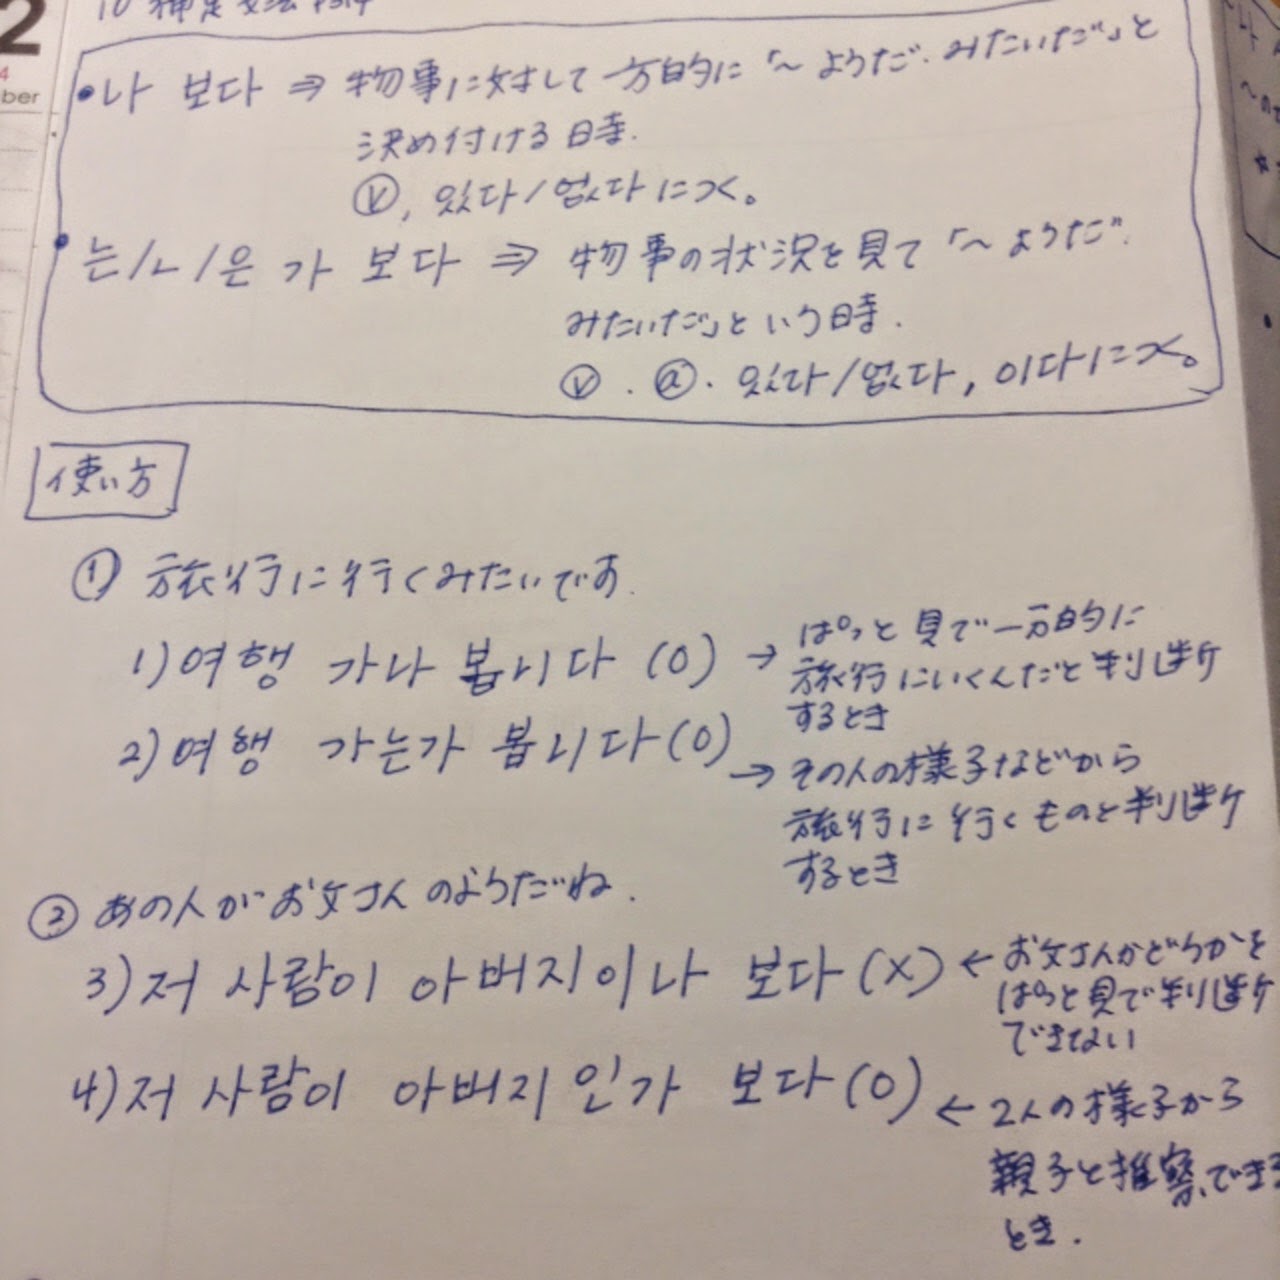 2
4
ber
10 補足文法 P314
•나 보다 ⇒ 物事に対して一方的に「~ようだ.みたいだ」と
決め付ける時.
Ⓥ, 있다/없다に×。
•는/ㄴ/은 가 보다 ⇒ 物事の状況を見て「~ようだ.
みたいだ」という時.
Ⓥ.ⓐ.있다/없다, 이다に×。
使い方
① 旅行に行くみたいです.
1)여행 가나 봅니다 (O) → ぱっと見で一方的に
旅行にいくんだと判断
するとき
2)여행 가는가 봅니다(O)
→ その人の様子などから
旅行に行くものと判断
するとき
② あの人がお父さんのようだね.
3)저 사람이 아버지이나 보다(X) ← お父さんかどうかを
ぱっと見で判断
できない
4)저 사람이 아버지인가 보다(O) ← 2人の様子から
親子と推察できる
とき.